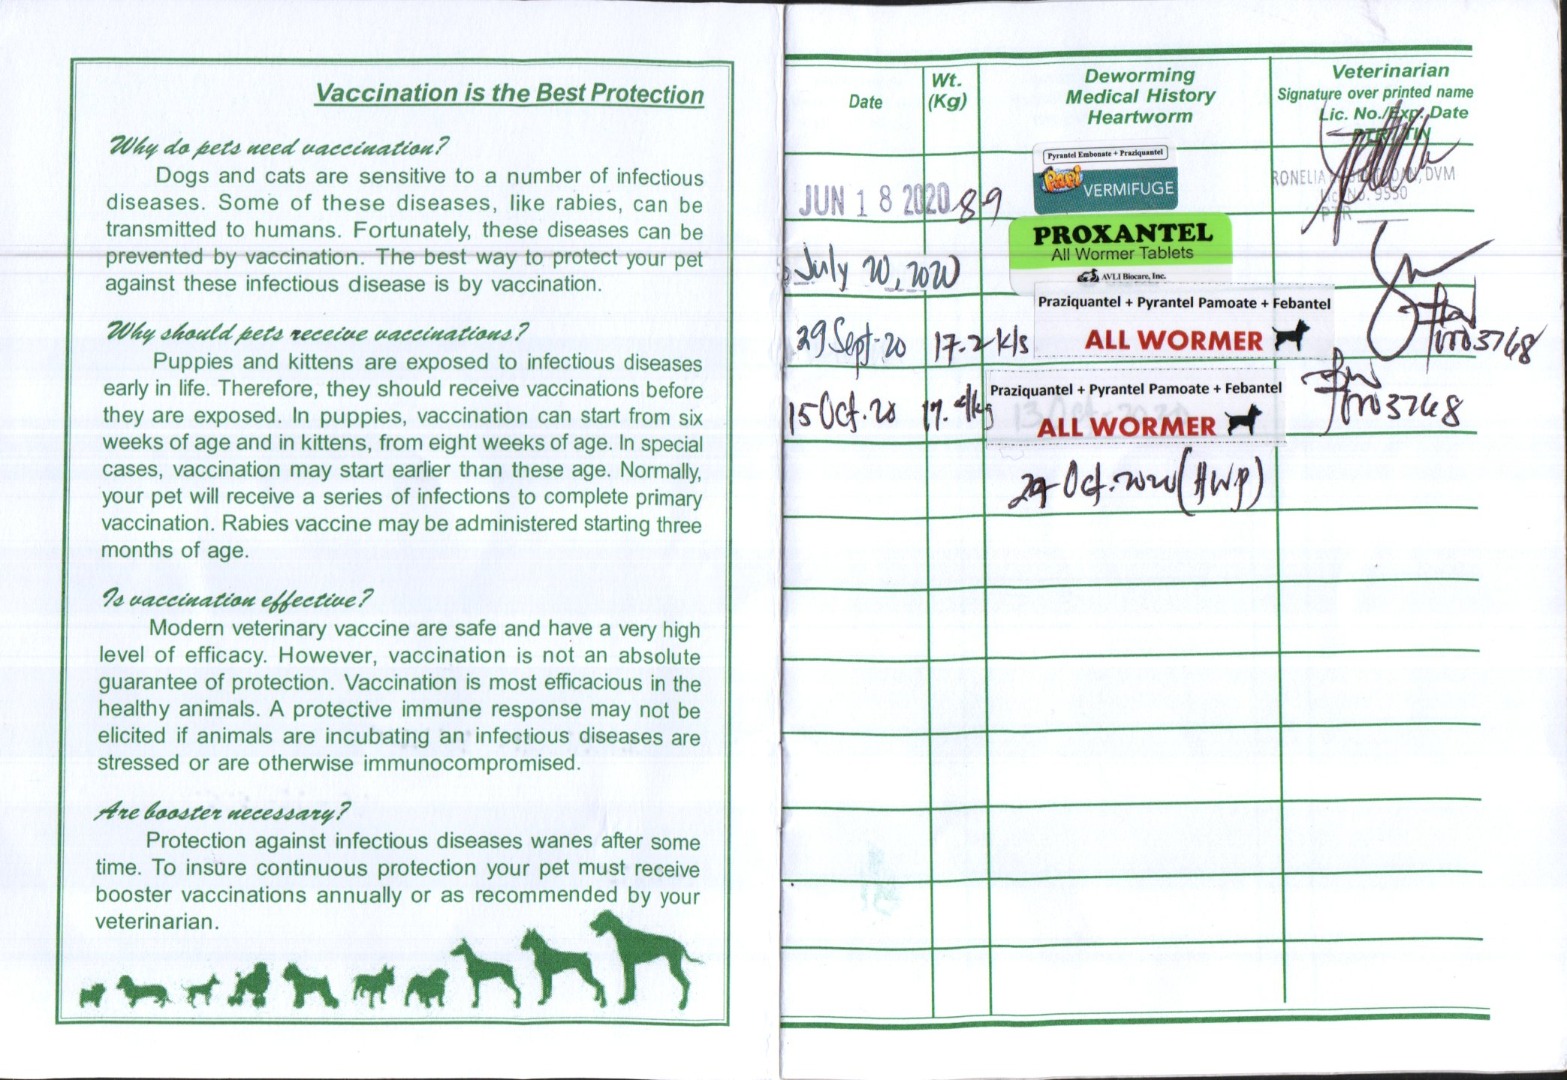 Vaccination is the Best Protection
Why do pets need vaccination?
Dogs and cats are sensitive to a number of infectious
diseases. Some of these diseases, like rabies, can be
transmitted to humans. Fortunately, these diseases can be
prevented by vaccination. The best way to protect your pet
against these infectious disease is by vaccination.
Why should pets receive vaccinations?
Puppies and kittens are exposed to infectious diseases
early in life. Therefore, they should receive vaccinations before
they are exposed. In puppies, vaccination can start from six
weeks of age and in kittens, from eight weeks of age. In special
cases, vaccination may start earlier than these age. Normally,
your pet will receive a series of infections to complete primary
vaccination. Rabies vaccine may be administered starting three
months of age.
Is vaccination effective?
Modern veterinary vaccine are safe and have a very high
level of efficacy. However, vaccination is not an absolute
guarantee of protection. Vaccination is most efficacious in the
healthy animals. A protective immune response may not be
elicited if animals are incubating an infectious diseases are
stressed or are otherwise immunocompromised.
Are booster necessary?
Protection against infectious diseases wanes after some
time. To insure continuous protection your pet must receive
booster vaccinations annually or as recommended by your
veterinarian.
Date
Wt.
(Kg)
Deworming
Medical History
Heartworm
Veterinarian
Signature over printed name
Lic. No./Exp. Date
JUN 18 2020
8.9
Pyrantel Embonate + Praziquantel
Papi
VERMIFUGE
RONELIA DVM
PTR
July 20, 2020
PROXANTEL
All Wormer Tablets
AVLI Biocare, Inc.
29 Sept-20
17.2 kls
Praziquantel + Pyrantel Pamoate + Febantel
ALL WORMER
3768
15 Oct. 20
Praziquantel + Pyrantel Pamoate + Febantel
ALL WORMER
3768
29 Oct. 2020 (HWP)